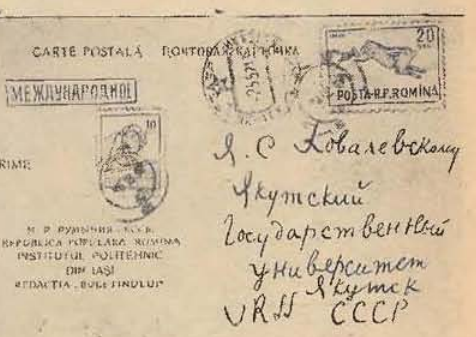 CARTE POSTALĂ ПОЧТОВАЯ КАРТОЧКА
МЕЖДУНАРОДНОЕ
20
POSTA R.P.ROMÎNA
10
RIME
Н. Р. РУМЫНИЯ
REPUBLICA POPULARA ROMINA
INSTITUTUL POLITEHNIC
DIN IAȘI
REDACTIA
Я. С Ковалевскому
Якутский
Государственный
университет
Якутск
URSS СССР